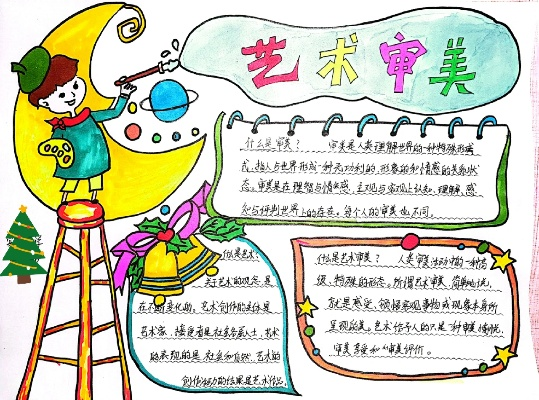 艺术审美
什么是审美？ 审美是人类理解世界的一种特殊形
式，指人与世界形成一种无功利的、形象的和情感的关系状
态。审美是在理智与情感、主观与客观上认知、理解、感
知与评判世界上的存在。每个人的审美也不同。
什么是艺术：
关于艺术的观念，是
在不断变化的。艺术创作的主体是
艺术家，接受者是社会各界人士，艺术
的表现的是社会和自然，艺术的
创作活动的结果是艺术作品。
什么是艺术审美？ 人类审美活动中的一种高
级、特殊的形态。所谓艺术审美，简单地说，
就是感受、领悟客观事物或现象本身所
呈现的美。艺术给予人的只是一种审美情境、
审美享受和审美评价。